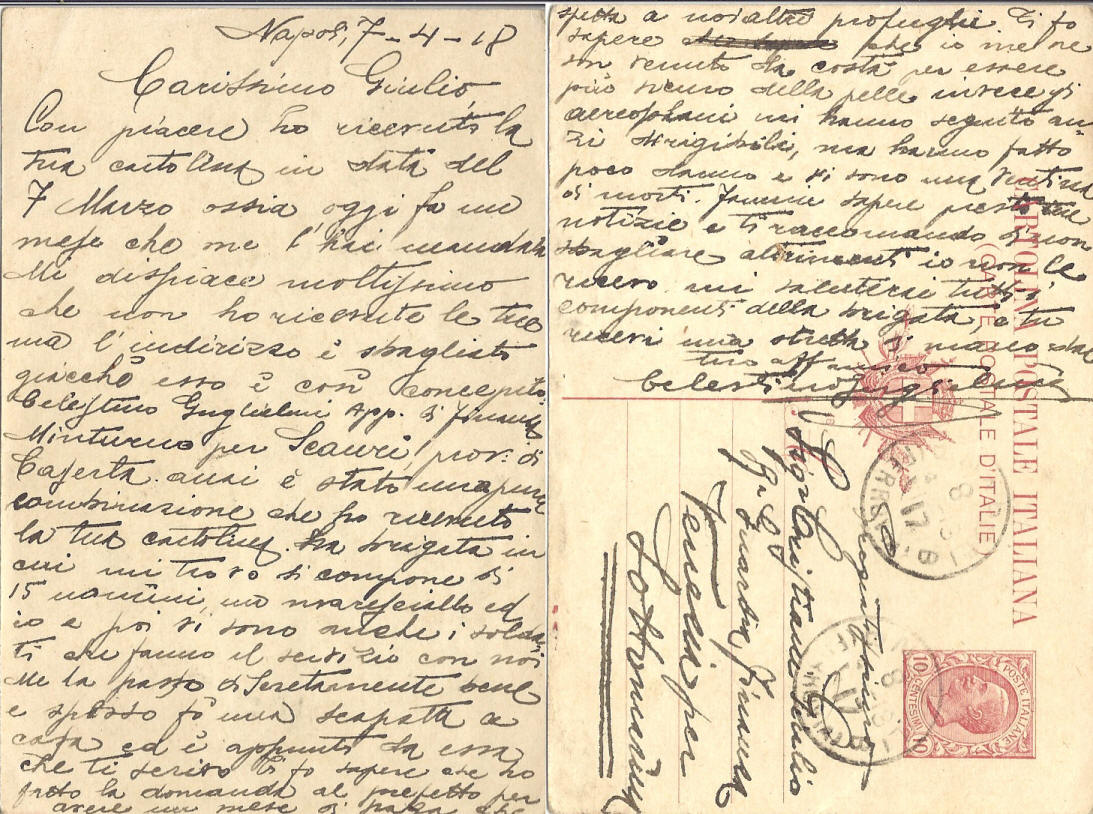 Napoli, 7-4-18
Carissimo Giulio,
Con piacere ho ricevuto la
tua cartolina in data del
7 Marzo ossia oggi fa un
mese che me l'hai mandata
Mi dispiace moltissimo
che non ho ricevute le tue
ma l'indirizzo è sbagliato
giacchè esso è così concepito
Celestino Guglielmi App. di Finanza
Minturno per Scauri, prov. di
Caserta. anzi è stata una pura
combinazione che ho ricevuto
la tua cartolina. La brigata in
cui mi trovo si compone di
15 uomini, un maresciallo ed
io e poi vi sono anche i solda
ti che fanno il servizio con noi
Me la passo discretamente bene
e spesso fò una scapata a
casa ed è appunto da essa
che ti scrivo Ti fo sapere che ho
fatto la domanda al prefetto per
avere un mese di paga che
spetta a noi altri profughi. Ti fo
sapere che io me ne
son venuto da costà per essere
più sicuro della pelle invece gli
aereoplani mi hanno seguito an-
zi dirigibili, ma hanno fatto
poco danno e vi sono una ventina
di morti. Fammi sapere presto tue
notizie e ti raccomando di non
sbagliare altrimenti io non le
ricevo. mi saluterai tutti i
componenti della brigata, e tu
ricevi una stretta di mano dal
tuo aff amico
Celestino Guglielmi
CARTOLINA POSTALE ITALIANA
(CARTE POSTALE D'ITALIE)
POSTE ITALIANE
10 CENTESIMI 10
Giulio
R.a Guardia Finanza
Venezia per
Sottomarina